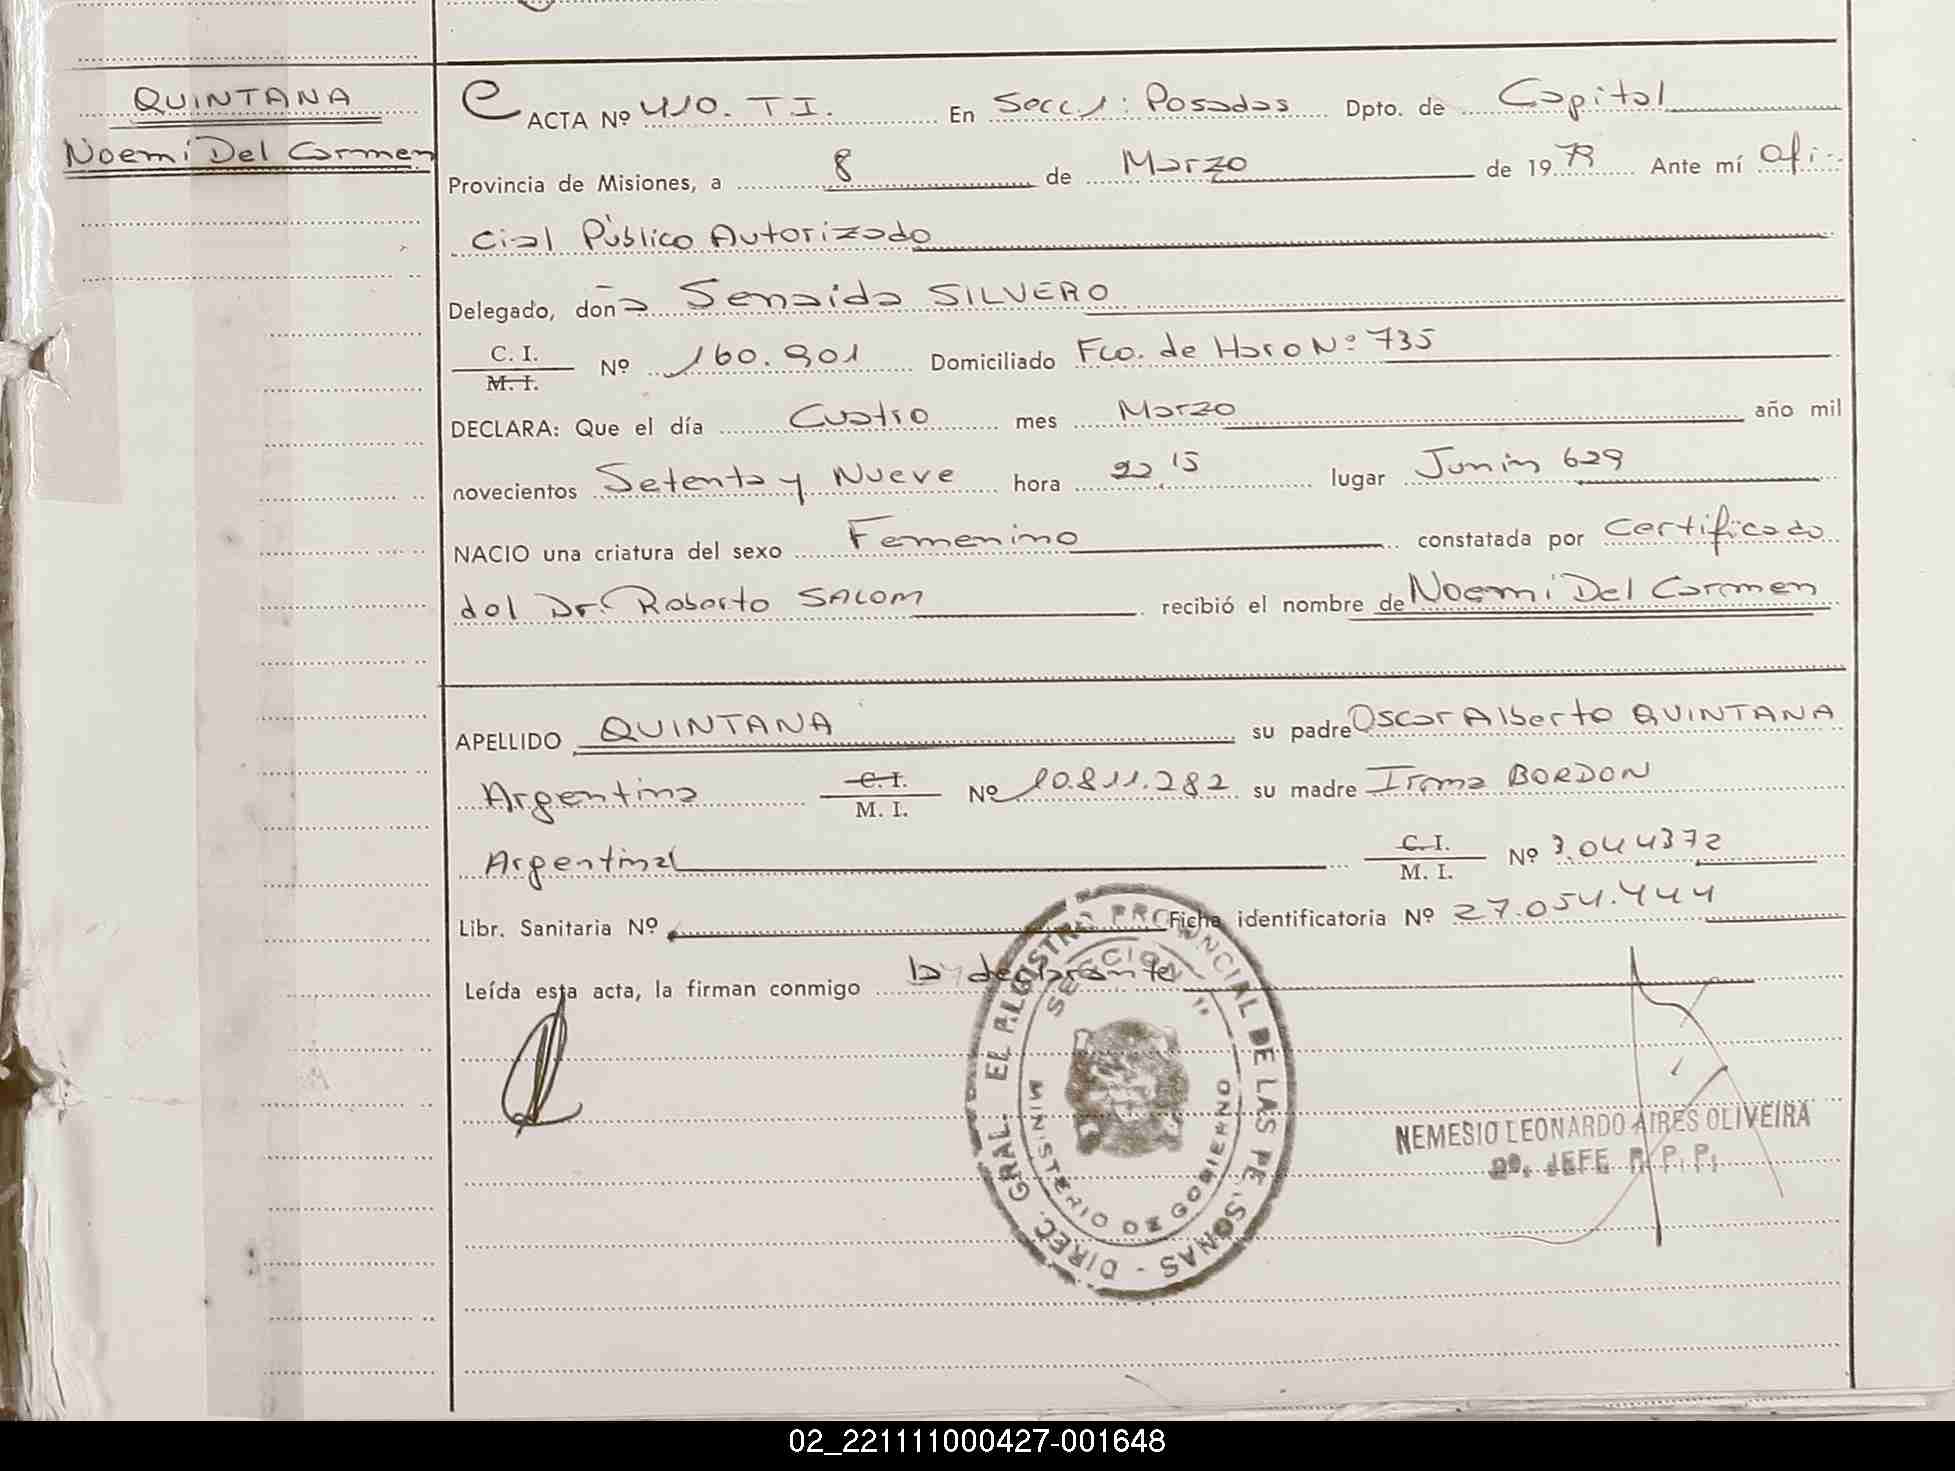 QUINTANA
Noemi Del Carmen
ACTA Nº 410. T I. En Secc. 1: Posadas Dpto. de Capital
Provincia de Misiones, a 8 de Marzo de 1979 Ante mí Ofi-
cial Público Autorizado
Delegado, doña Senaida SILVERO
C. I.
M. I. Nº 160.901 Domiciliado Fco. de Haro Nº 735
DECLARA: Que el día Cuatro mes Marzo año mil
novecientos Setenta y Nueve hora 22,15 lugar Junin 629
NACIO una criatura del sexo Femenino constatada por Certificado
del Dr. Roberto SALOM recibió el nombre de Noemi Del Carmen
APELLIDO QUINTANA su padre Oscar Alberto QUINTANA
Argentina C. I. M. I. Nº 10.811.282 su madre Irma BORDON
Argentina C. I. M. I. Nº 3.044372
Libr. Sanitaria Nº Ficha identificatoria Nº 27.054.444
Leída esta acta, la firman conmigo la declarante
DIREC. GRAL. EL REGISTRO PROVINCIAL DE LAS PERSONAS -
SECCION 1
MINISTERIO DE GOBIERNO
NEMESIO LEONARDO AIRES OLIVEIRA
JEFE R. P. P.
02_221111000427-001648